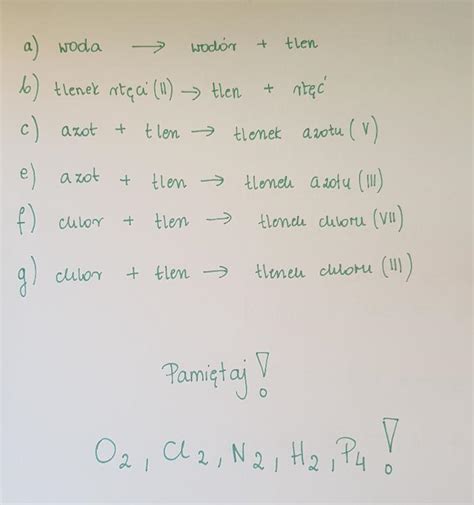 a) woda → wodór + tlen
b) tlenek rtęci (II) → tlen + rtęć
c) azot + tlen → tlenek azotu (V)
e) azot + tlen → tlenek azotu (III)
f) chlor + tlen → tlenek chloru (VII)
g) chlor + tlen → tlenek chloru (III)
Pamiętaj!
O₂, Cl₂, N₂, H₂, P₄!